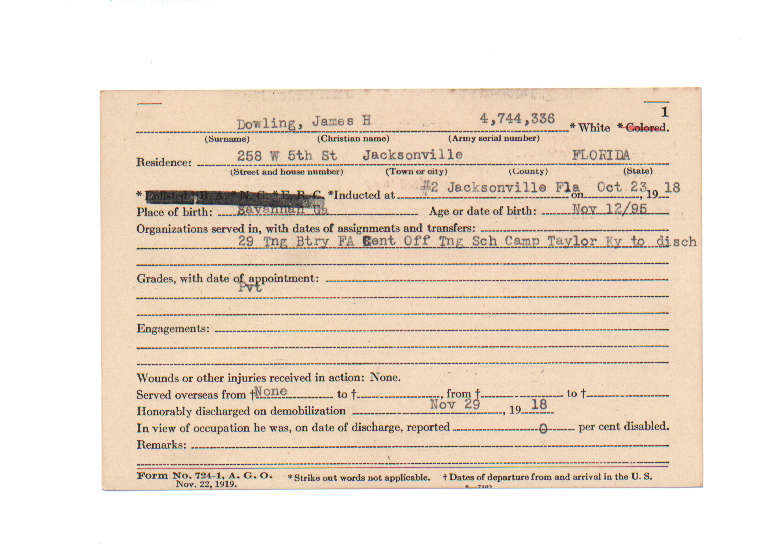 1
Dowling, James H 4,744,336 * White * Colored.
(Surname) (Christian name) (Army serial number)
258 W 5th St Jacksonville FLORIDA
Residence:
(Street and house number) (Town or city) (County) (State)
* Enlisted * R. A. * N. G. * E. R. C. *Inducted at #2 Jacksonville Fla on Oct 23, 19 18
Place of birth: Savannah Ga Age or date of birth: Nov 12/95
Organizations served in, with dates of assignments and transfers:
29 Tng Btry FA Cent Off Tng Sch Camp Taylor Ky to disch
Grades, with date of appointment:
Pvt
Engagements:
Wounds or other injuries received in action: None.
Served overseas from † None to †, from † to †
Honorably discharged on demobilization Nov 29, 19 18
In view of occupation he was, on date of discharge, reported 0 per cent disabled.
Remarks:
Form No. 724-1, A. G. O. * Strike out words not applicable. † Dates of departure from and arrival in the U. S.
Nov. 22, 1919.